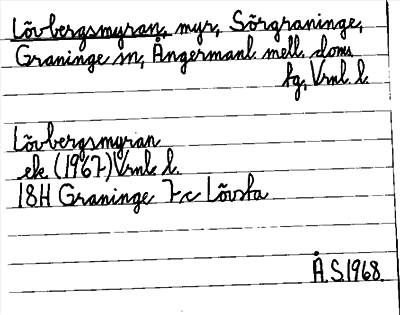 Lövbergsmyran, myr, Sörgraninge,
Graninge sn, Ångermanl. mell. doms
tg, Vrnl. l.
Lövbergsmyran
ek (1967) Vrnl. l.
18H Graninge 7c Lövsta
Å.S.1968.